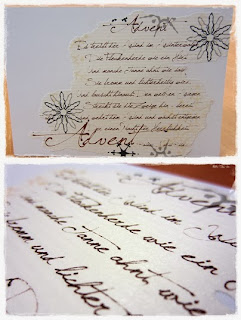 Advent
Es treibt der Wind im Winterwalde
Die Flockenherde wie ein Hirt
Und manche Tanne ahnt wie balde
Sie fromm und lichterheilig wird
und lauscht hinaus, den weißen Wegen
Streckt sie die Zweige hin - bereit
und wehrt dem Wind und wächst entgegen
der einen Nacht der Herrlichkeit
Advent
Wind im
Flockenherde wie ein
manche Tanne ahnt, wie
fromm und lichter